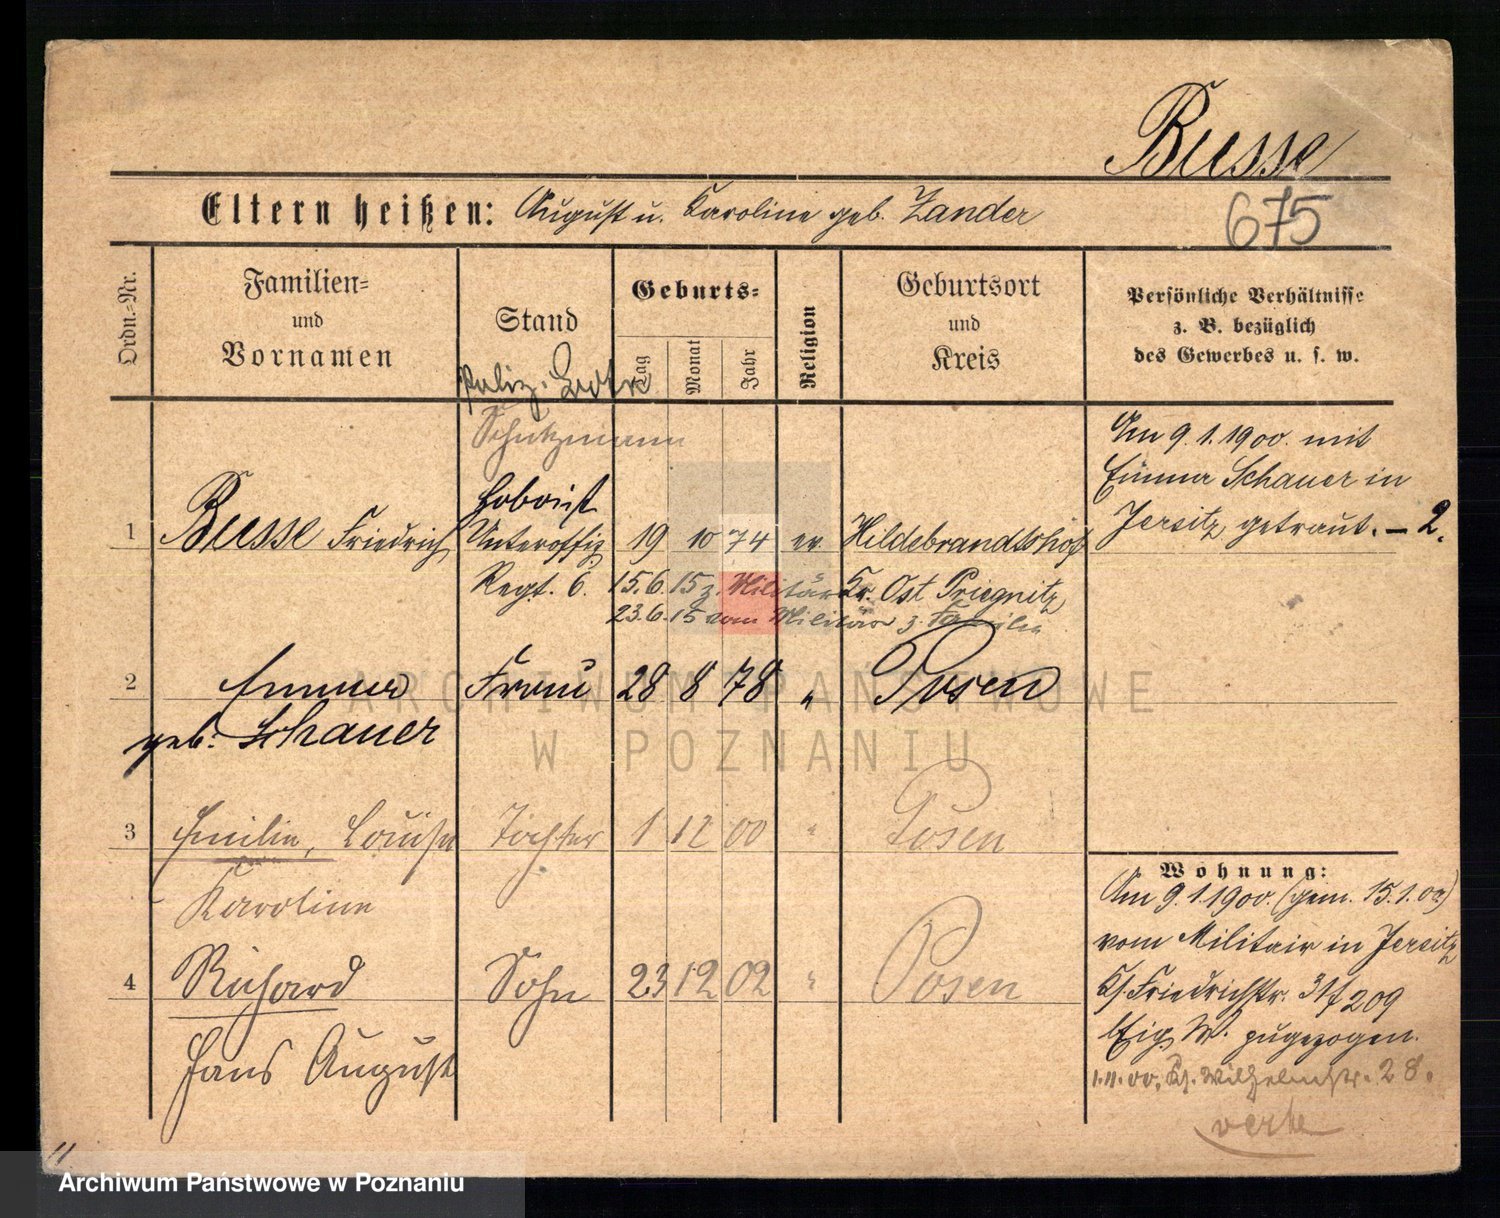 Busse
Eltern heißen: August u. Karoline geb. Zander
675
Ordn.-Nr.
Familien-
und
Vornamen
Stand
Geburts-
Tag
Monat
Jahr
Religion
Geburtsort
und
Kreis
Persönliche Verhältnisse
z. B. bezüglich
des Gewerbes u. s. w.
Poliz.
Schutzmann
Hoboist
1 Busse Friedrich Unteroffiz 19 10 74 ev. Hildebrandtshof
Regt. 6. Kr. Ost Priegnitz
15.6.15 z. Militär
23.6.15 vom Militär z. Familie
2 Emma Frau 28 8 78 " Posen
geb. Schauer
3 Emilie, Louise Tochter 1 12 00 " Posen
Karoline
4 Richard Sohn 23 12 02 " Posen
Hans August
Am 9.1.1900. mit
Emma Schauer in
Jersitz getraut. – 2.
Wohnung:
Am 9.1.1900. (gem. 15.1.00)
vom Militair in Jersitz
Ks. Friedrichstr. 31/209
Eig. W. zugezogen.
1.11.00, Ks. Wilhelmstr. 28.
verte
11
ARCHIWUM PAŃSTWOWE
W POZNANIU
Archiwum Państwowe w Poznaniu